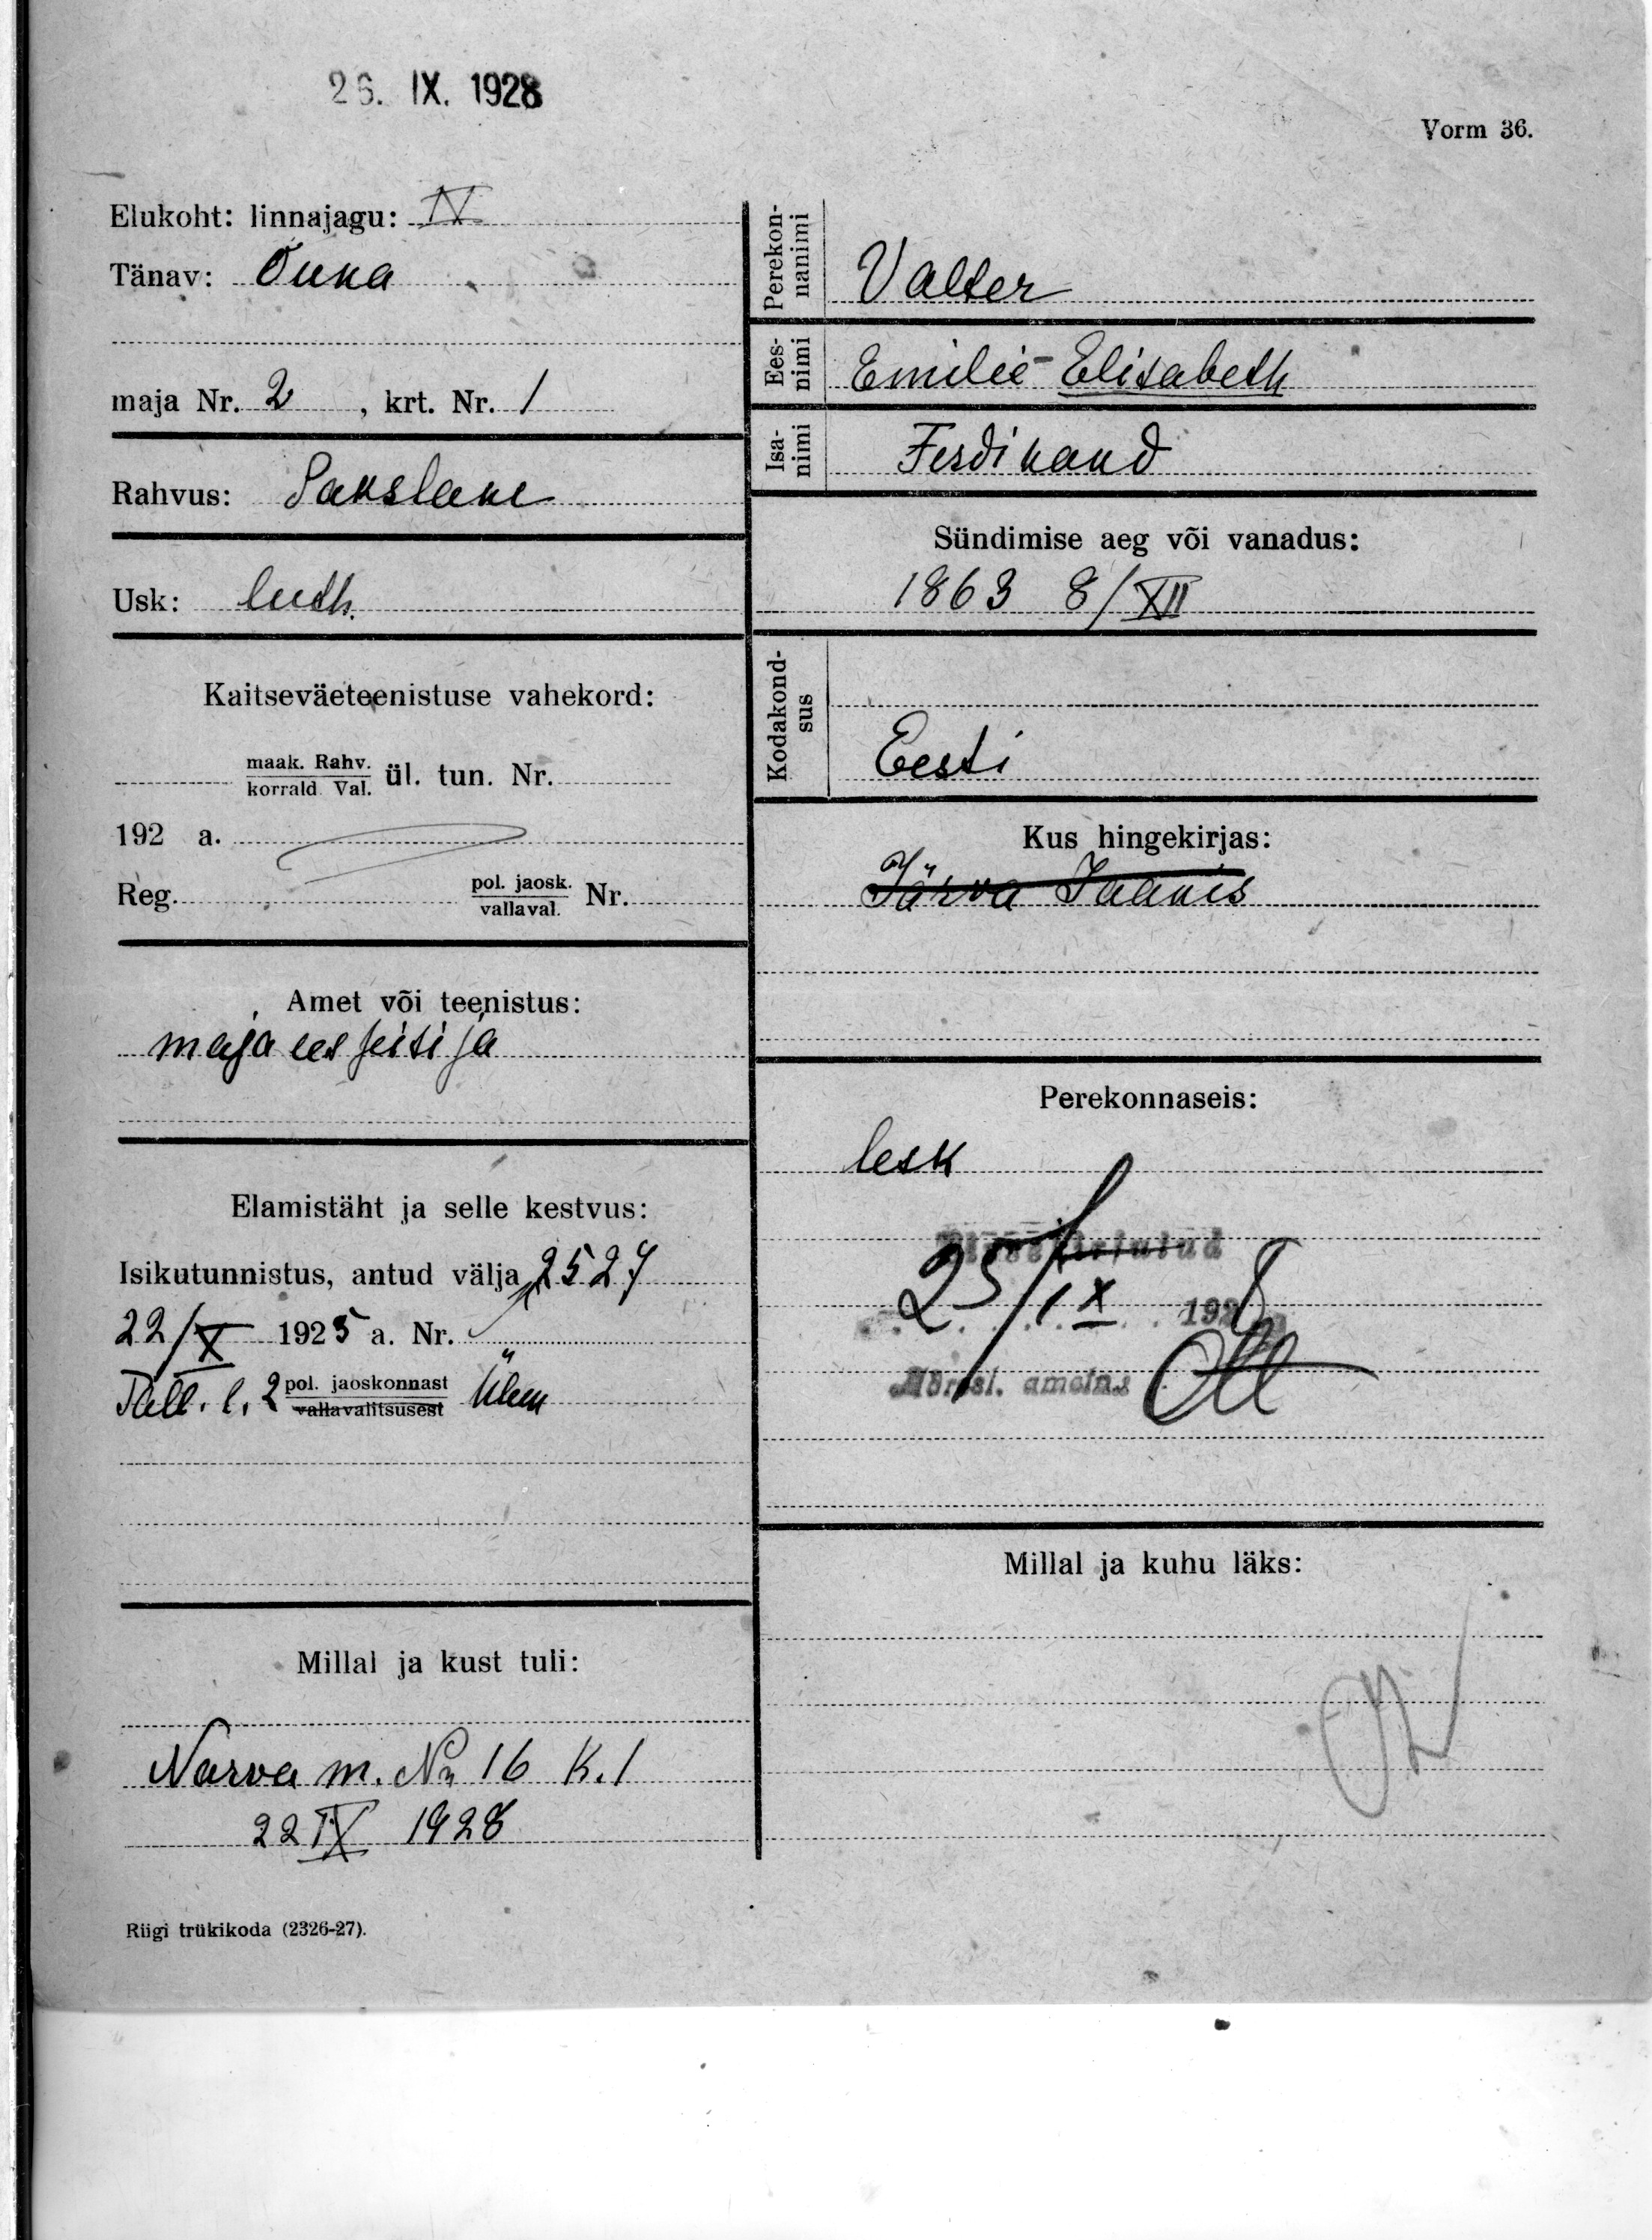 26. IX. 1928
Vorm 36.
Elukoht: linnajagu: IV
Tänav: Õuna
maja Nr. 2 , krt. Nr. 1
Rahvus: Sakslane
Usk: luth.
Kaitseväeteenistuse vahekord:
maak. Rahv.
korrald. Val. ül. tun. Nr.
192 a.
Reg. pol. jaosk.
vallaval. Nr.
Amet või teenistus:
maja ees seisija
Elamistäht ja selle kestvus:
Isikutunnistus, antud välja 2527
22/X 1925 a. Nr.
Tall. l. 2 pol. jaoskonnast
vallavalitsusest
Millal ja kust tuli:
Narva m. No 16 K. 1
22 IX 1928
Riigi trükikoda (2326-27).
Perekon-
nanimi
Valter
Ees-
nimi
Emilie-Elisabeth
Isa-
nimi
Ferdinand
Sündimise aeg või vanadus:
1863 8/XII
Kodakond-
sus
Eesti
Kus hingekirjas:
Järva Jaanis
Perekonnaseis:
lesk
Sissekirjutud
25/IX 1928
Adressl. ametn. Ott
Millal ja kuhu läks: